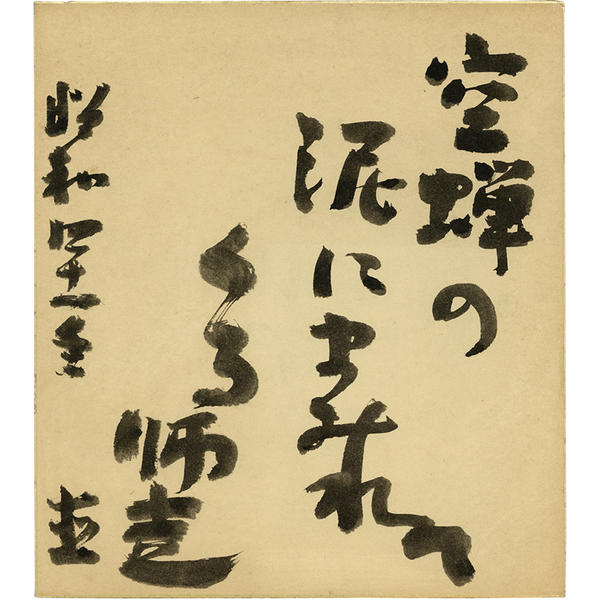 空蝉の
泥にまみれて
くる師走
昭和四十一年